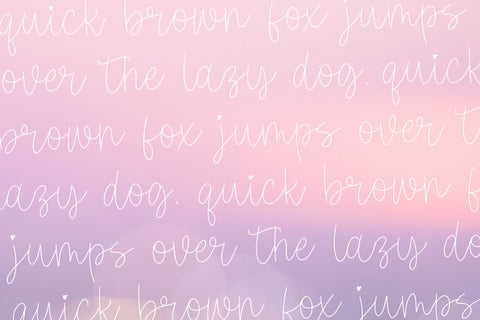 quick brown fox jumps
over the lazy dog. quick
brown fox jumps over t
azy dog. quick brown f
jumps over the lazy do
quick brown fox jumps